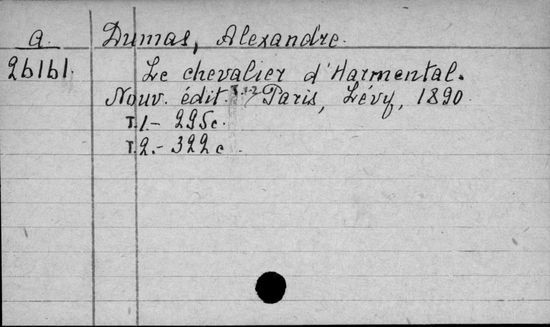 a. Dumas, Alexandre.
26161. Le chevalier d'Harmental.
Nouv. édit. T.1-2 Paris, Lévy, 1890
T.1.- 295c.
T.2.- 322c.